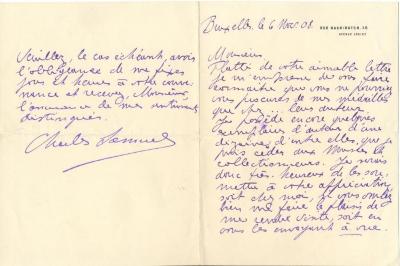 Bruxelles, le 6 Nov. 08
RUE WASHINGTON, 36
AVENUE LOUISE
Monsieur
Flatté de votre aimable lettre
je m'empresse de vous faire
connaitre que vous ne pourriez
vous procurer de mes médailles
que chez leur auteur.
Je possède encore quelques
exemplaires d'auteur d'une
dizaine d'entre elles, que je
puis céder aux Musées et
collectionneurs. Je serais
donc très heureux de les sou
mettre à votre appréciation,
soit chez moi, si vous voulez
bien me faire le plaisir de
me rendre visite, soit en
vous les envoyant à vue.
Veuillez, le cas échéant, avoir
l'obligeance de me fixer
jour et heures à votre conve
nance et recevez, Monsieur,
l'assurance de mes sentiments
distingués.
Charles Samuel